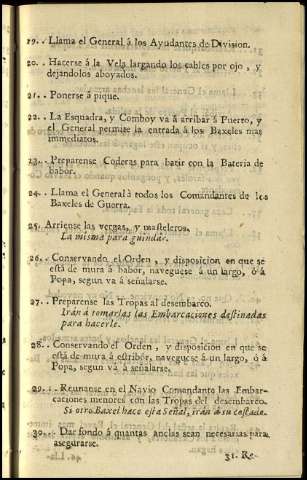 19. . Llama el General á los Ayudantes de Division.
20. . Hacerse á la Vela largando los cables por ojo , y
dejandolos aboyados.
21. . Ponerse á pique.
22. . La Esquadra, y Comboy vá á arribar á Puerto, y
el General permite la entrada á los Baxeles mas
immediatos.
23. . Preparense Coderas para batir con la Bateria de
babor.
24. . Llama el General á todos los Comandantes de los
Baxeles de Guerra.
25. Arriense las vergas, y masteleros.
La misma para guindar.
26. . Conservando el Orden , y disposicion en que se
está de mura á babor, naveguese á un largo, ó á
Popa, segun vá á señalarse.
27. . Preparense las Tropas al desembarco.
Irán á tomarlas las Embarcaciones destinadas
para hacerle.
28. . Conservando el Orden , y disposicion en que se
está de mura á estribor, naveguese á un largo, ó á
Popa, segun vá á señalarse.
29. . . Reunanse en el Navio Comandante las Embar-
caciones menores con las Tropas del desembarco.
Si otro Baxel hace esta Señal, irán á su costado.
30. . . Dar fondo á quantas anclas sean necesarias para
asegurarse.
31. Re-